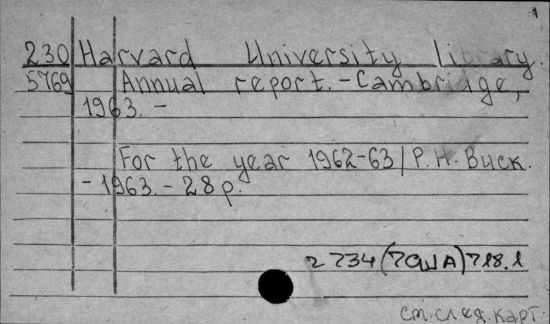 1
230 Harvard University library.
5769 Annual report. - Cambridge,
1963. -
For the year 1962-63 / P. H. Buck.
- 1963. - 28 p.
2 734 (7США) 718.1
см. след. карт.